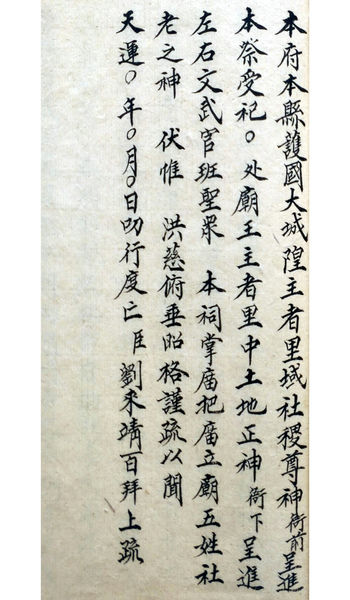 本府本縣護國大城隍主者里域社稷尊神衙前呈進
本祭受祀○处廟王主者里中土地正神衙下呈進
左右文武官班聖眾 本祠掌庙把庙立廟五姓社
老之神 伏惟 洪慈俯垂昭格謹疏以聞
天運○年○月○日叩行度亡臣劉來靖百拜上疏